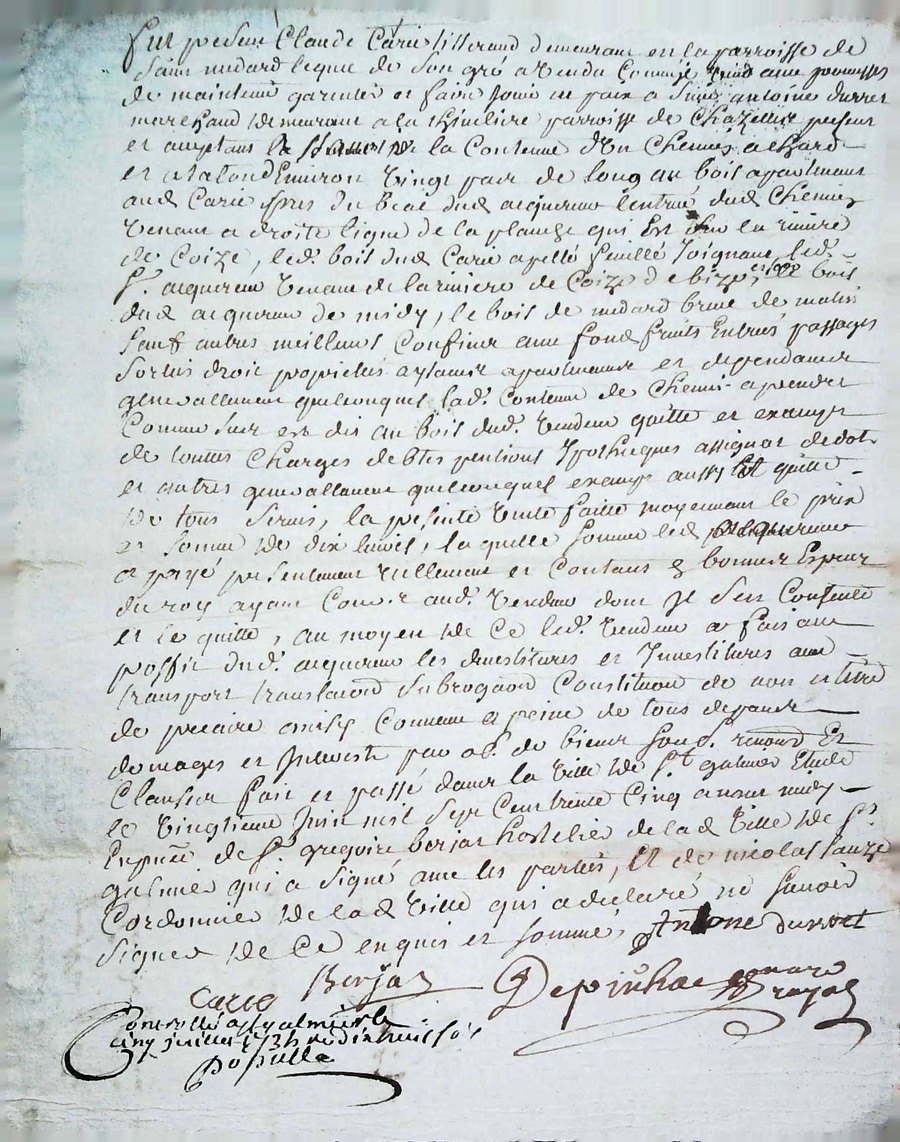 Fut present Claude Carié tisserand demeurant en la parroisse de
Saint medard lequel de son gré a vendu comme vend avec promesses
de maintenir garentir et faire jouir en paix a Sieur antoine durret
marchand demeurant a la thiuliere parroisse de Chazelles present
et acceptant de la Contenue d'Un Chemin a Chard
et a talond Environ Vingt pair de long au bois apartenant
aud Carié pres du beal dud acquereur lentrée dud Chemin
Venant a droite ligne de la planche qui Est Sur la riviere
de Coize, led. bois dud Carié apellé feuillé Joignant led.
Sr. acquereur Venant de la riviere de Coize de bize, le bois
dud acquereur de midy, le bois de medard brun de matin
Sauf autres meilleurs Confins avec fond fruits Entrées passages
Sorties droit proprietés aysances apartenances et dependances
generallement quelconques lad. Contenue de Chemin a prendre
Comme Sus est dit au bois dud. Vendeur quitte et exampt
de touttes Charges debtes pentions Ypotheques assignat de dot
et autres generallement quelconques exampt aussy et quitte
de tous Servis, la presente Vente faitte moyennant le prix
et Somme de dix livres, laquelle Somme led acquereur
a payé presentement reellement et Contant en bonnes Especes
du roy ayant Cours aud. Vendeur dont Il s'en Contente
et le quitte, au moyen de Ce led. Vendeur a fait au
proffit dud. acquereur les devestitures et Investitures avec
transport translation Subrogaon Constituon de non et titre
de precaire omisy Comme a peine de tous depans
domages et Interests par ob. de biens Soub. renond Et
Clauses fait et passé dans la Ville de St galmier Etude
le Vingtieme Juin mil Sept Cent trente Cinq avant midy
En pnce de Sr. gregoire berjat hostelier de lad Ville de St.
galmier qui a Signé avec les parties, Et de nicolas Sauze
Cordonnier de lad Ville qui a declaré ne Scavoir
Signer de Ce enquis et Sommé, Antoine durret
Carié Berjat Depinhac
royal
Controllé a St galmier le
cinq juillet 173 dix huit sols